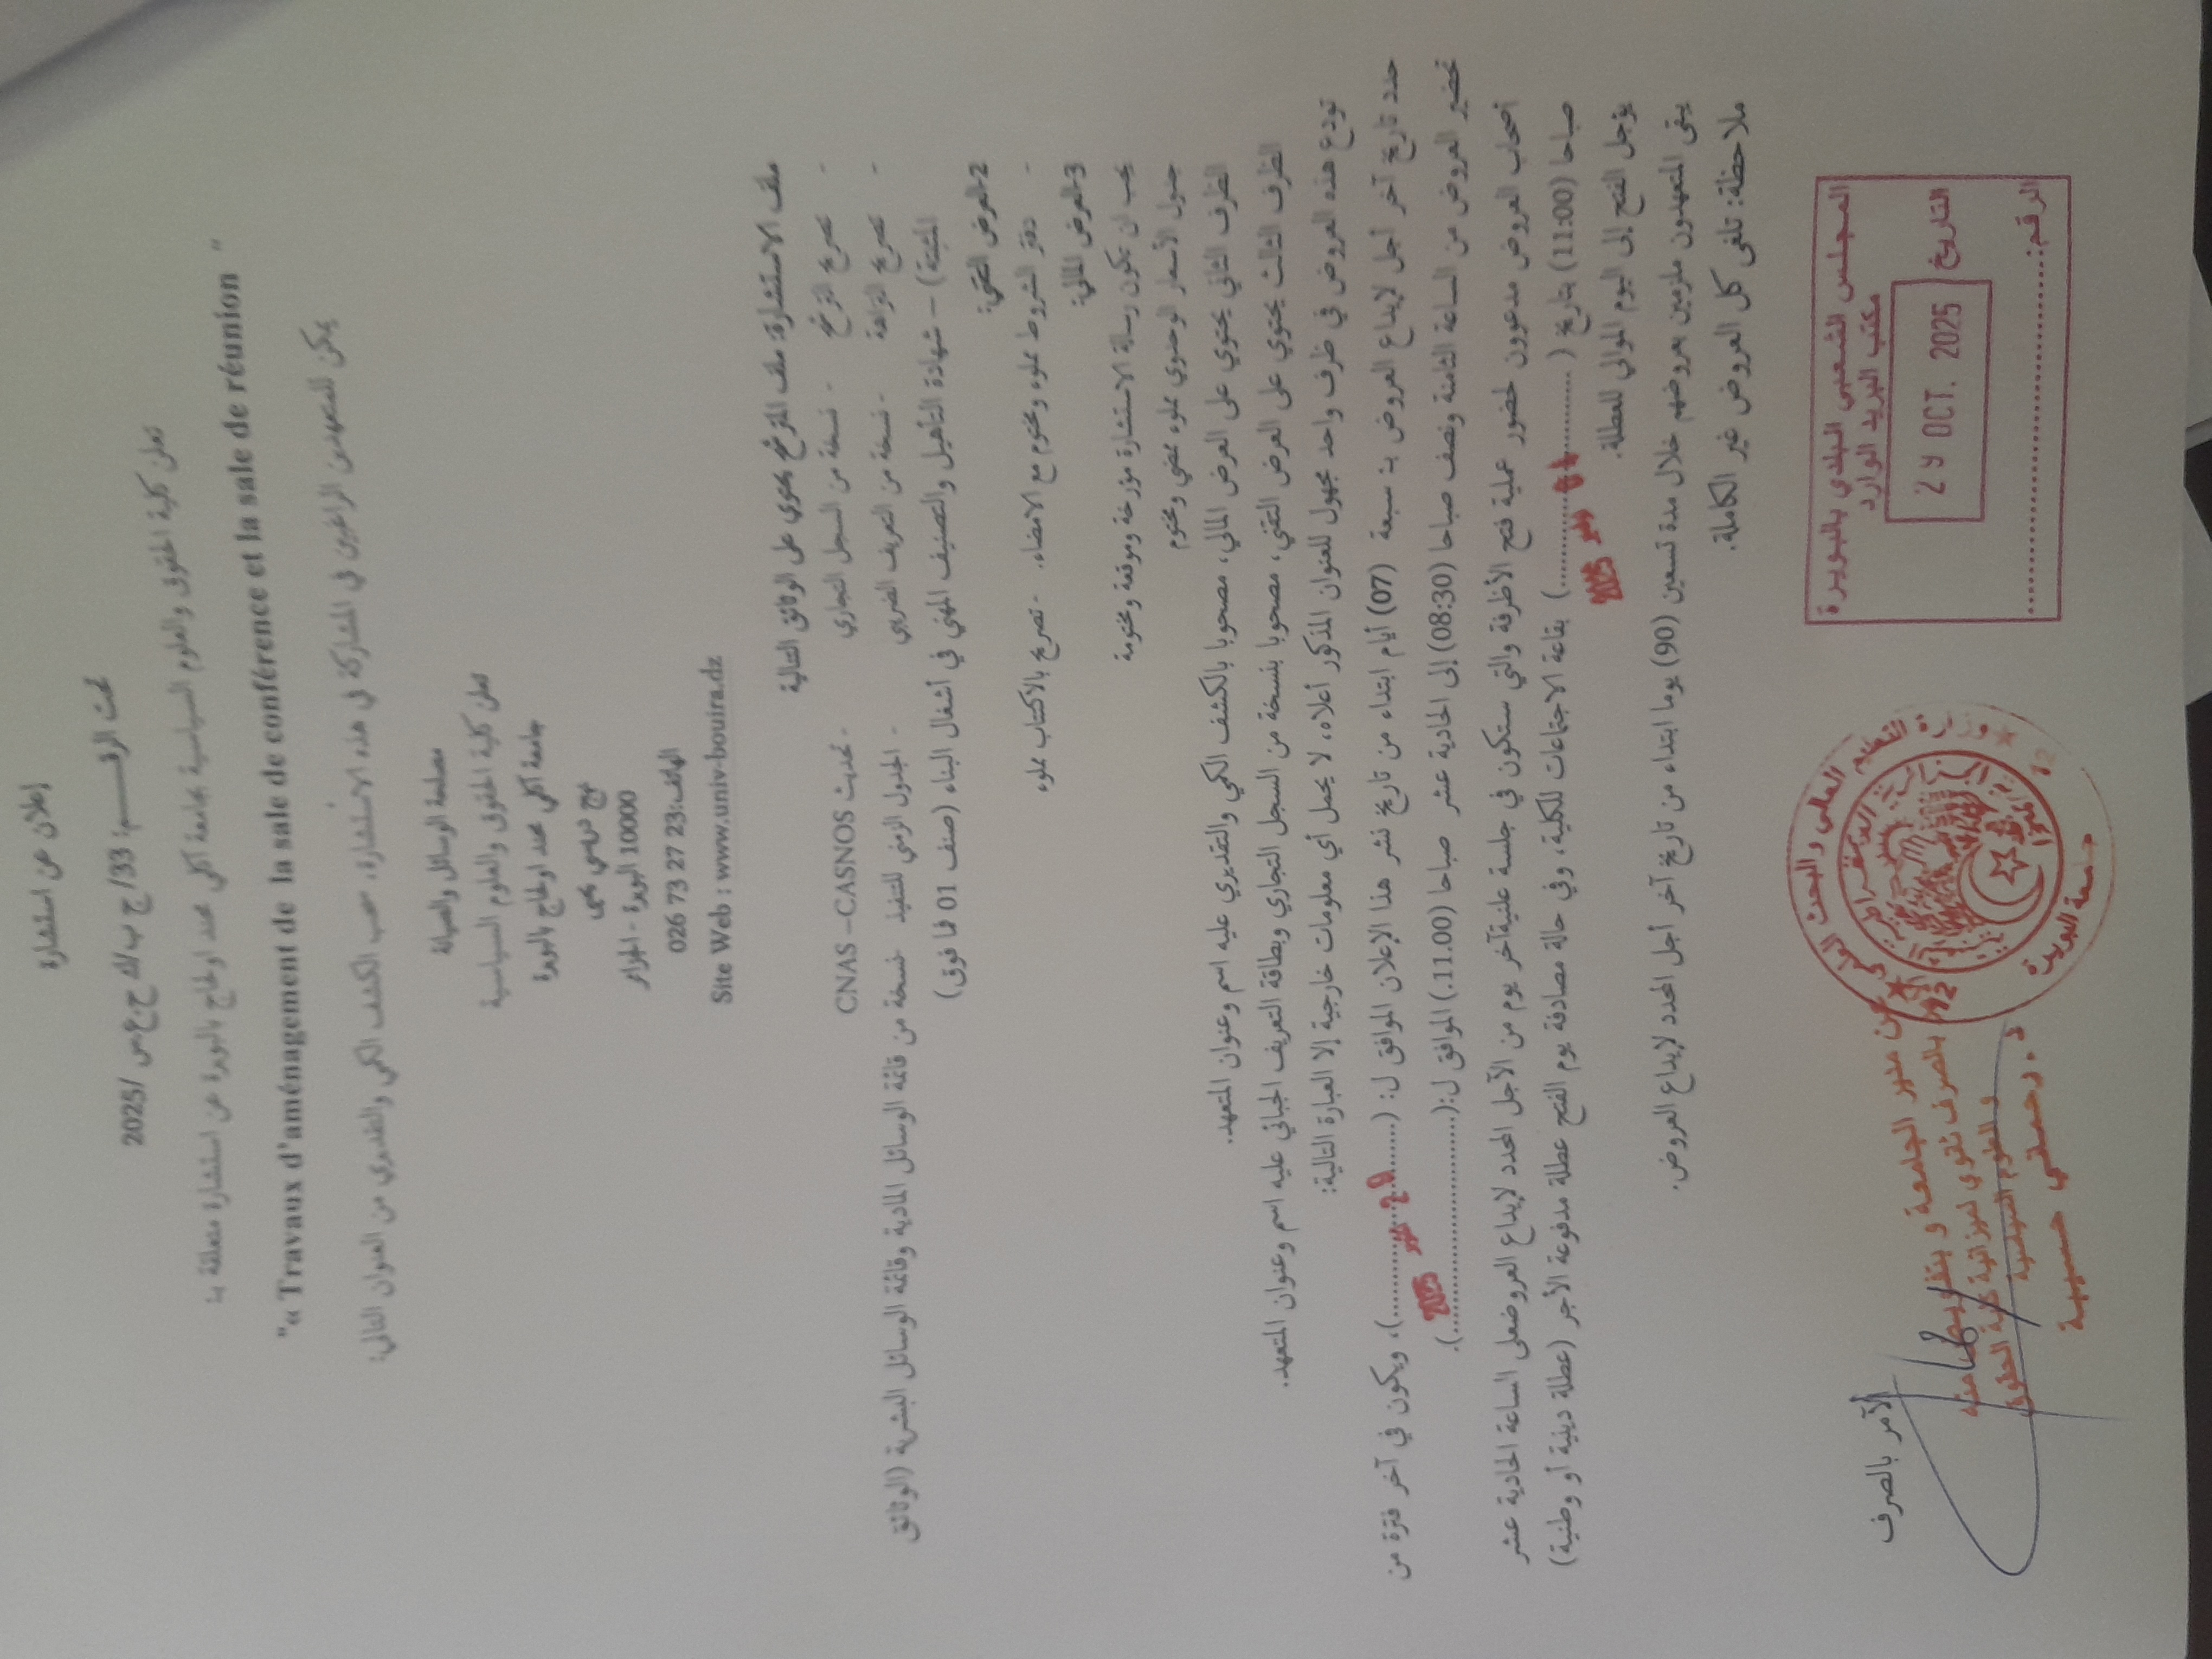 إعلان عن استشارة
تحت الرقـــــم: 33/ج ب/ك ح.ع.س /2025
تعلن كلية الحقوق والعلوم السياسية بجامعة آكلي محند اولحاج بالبويرة عن استشارة متعلقة بـ:
"« Travaux d'aménagement de la sale de conférence et la sale de réunion "
يمكن للمتعهدين الراغبين في المشاركة في هذه الاستشارة، سحب الكشف الكمي والتقديري من العنوان التالي:
مصلحة الوسائل والصيانة
تعلن كلية الحقوق والعلوم السياسية
جامعة آكلي محند اولحاج بالبويرة
نهج دريسي يحي
10000 البويرة - الجزائر
الهاتف:23 27 73 026
Site Web : www.univ-bouira.dz
ملف الاستشارة: ملف الترشح يحتوي على الوثائق التالية
- تصريح الترشح - نسخة من السجل التجاري - تحديث CNAS –CASNOS
- تصريح النزاهة - نسخة من التعريف الضريبي - الجدول الزمني للتنفيذ نسخة من قائمة الوسائل المادية وقائمة الوسائل البشرية (الوثائق
المثبتة) – شهادة التأهيل والتصنيف المهني في أشغال البناء (صنف 01 فما فوق)
2-العرض التقني:
- دفتر الشروط مملوء ومختوم مع الامضاء. - تصريح بالاكتتاب مملوء
3-العرض المالي:
يجب ان تكون رسالة الاستشارة مؤرخة وموقعة ومختومة
جدول الأسعار الوحدوي مملوء ممضي ومختوم
الظرف الثاني يحتوي على العرض المالي، مصحوبا بالكشف الكمي والتقديري عليه اسم وعنوان المتعهد.
الظرف الثالث يحتوي على العرض التقني، مصحوبا بنسخة من السجل التجاري وبطاقة التعريف الجبائي عليه اسم وعنوان المتعهد.
تودع هذه العروض في ظرف واحد مجهول للعنوان المذكور أعلاه، لا يحمل أي معلومات خارجية إلا العبارة التالية:
حدد تاريخ آخر أجل لإيداع العروض بـ سبعة (07) أيام ابتداء من تاريخ نشر هذا الإعلان الموافق ل: (............)، ويكون في آخر فترة من
تحضير العروض من الساعة الثامنة ونصف صباحا (08:30) إلى الحادية عشر صباحا (11.00.) الموافق ل:(....2025....).
أصحاب العروض مدعوون لحضور عملية فتح الأظرفة والتي ستكون في جلسة علنيةآخر يوم من الآجل المحدد لإيداع العروضعلى الساعة الحادية عشر
صباحا (11:00) بتاريخ (............2025) بقاعة الاجتماعات للكلية، وفي حالة مصادفة يوم الفتح عطلة مدفوعة الأجر (عطلة دينية أو وطنية)
يؤجل الفتح إلى اليوم الموالي للعطلة.
يبقى المتعهدون ملزمين بعروضهم خلال مدة تسعين (90) يوما ابتداء من تاريخ آخر أجل المحدد لإيداع العروض.
ملاحظة: تلغى كل العروض غير الكاملة.
المجلس الشعبي البلدي بالبويرة
مكتب البريد الوارد
التاريخ 29 OCT. 2025
الرقم:
الآمر بالصرف
عن مدير الجامعة و بتفويض منه
الآمر بالصرف ثانوي لميزانية كلية الحقوق
والعلوم السياسية
د. رحماني حسيبة
جامعة البويرة